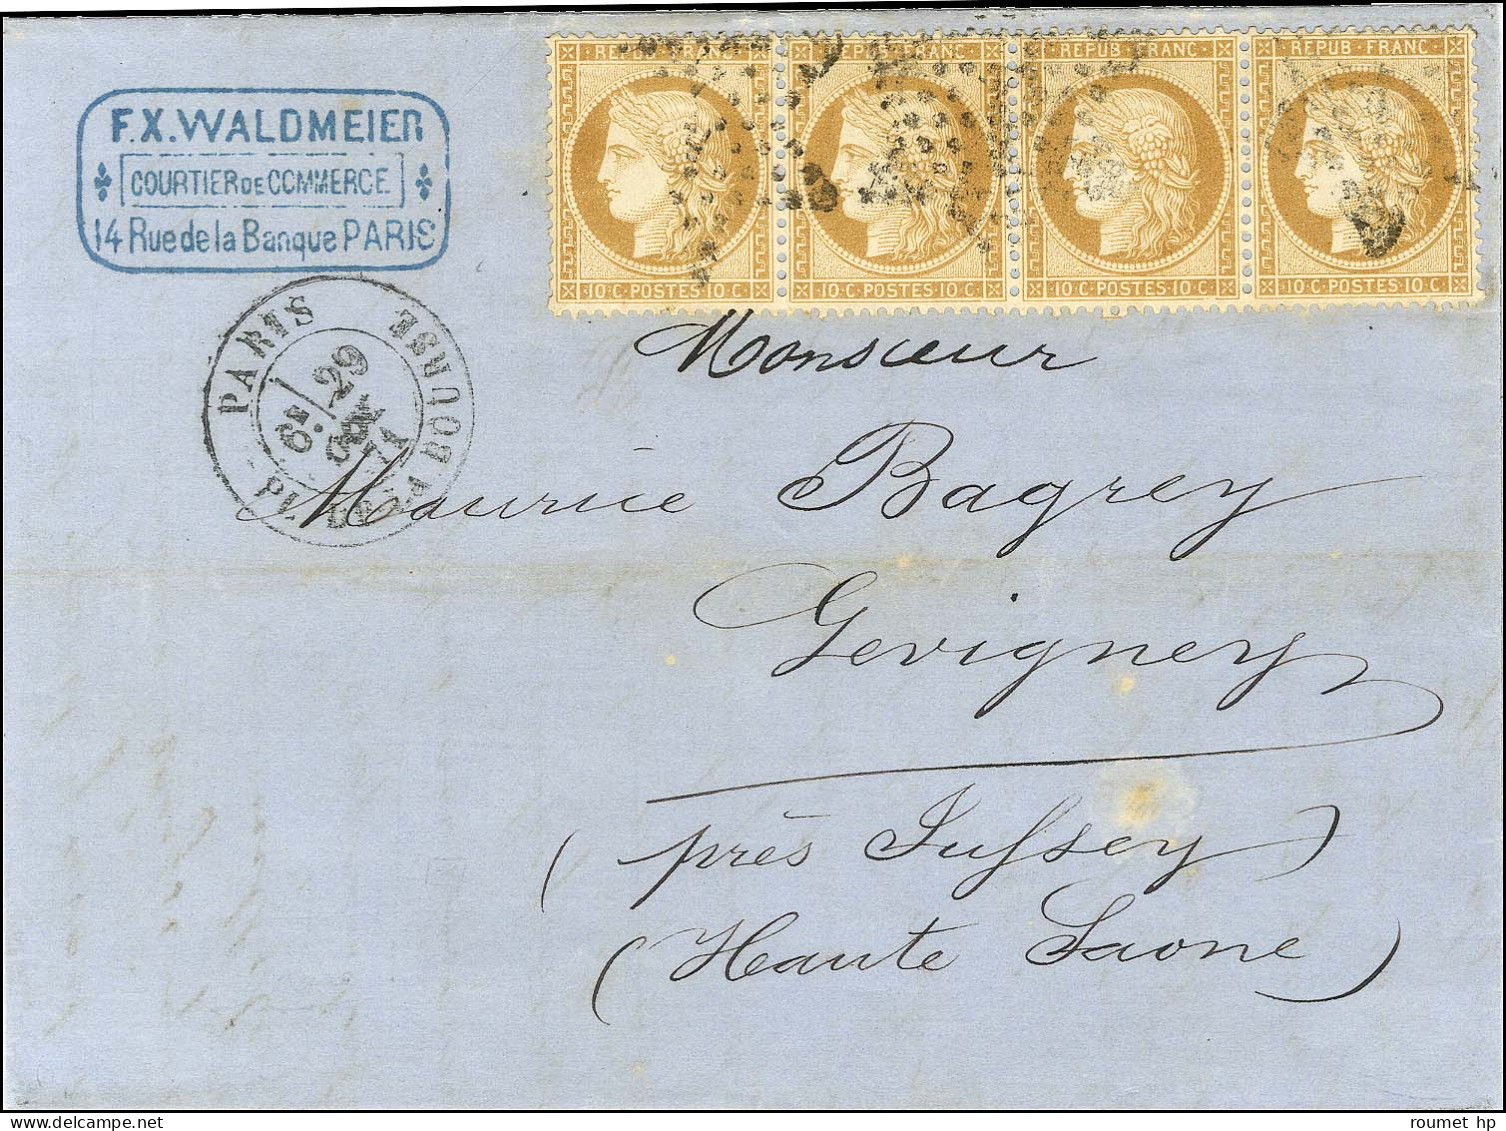 F.X. WALDMEIER
COURTIER DE COMMERCE
14 Rue de la Banque PARIS
REPUB·FRANC REPUB·FRANC REPUB·FRANC REPUB·FRANC
10·C·POSTES·10·C· 10·C·POSTES·10·C· 10·C·POSTES·10·C· 10·C·POSTES·10·C·
PARIS
PL. DE LA BOURSE
6E 29
71
Monsieur
Maurice Bagrey
Gevigney
(près Jussey)
(Haute Saone)
roumet hp